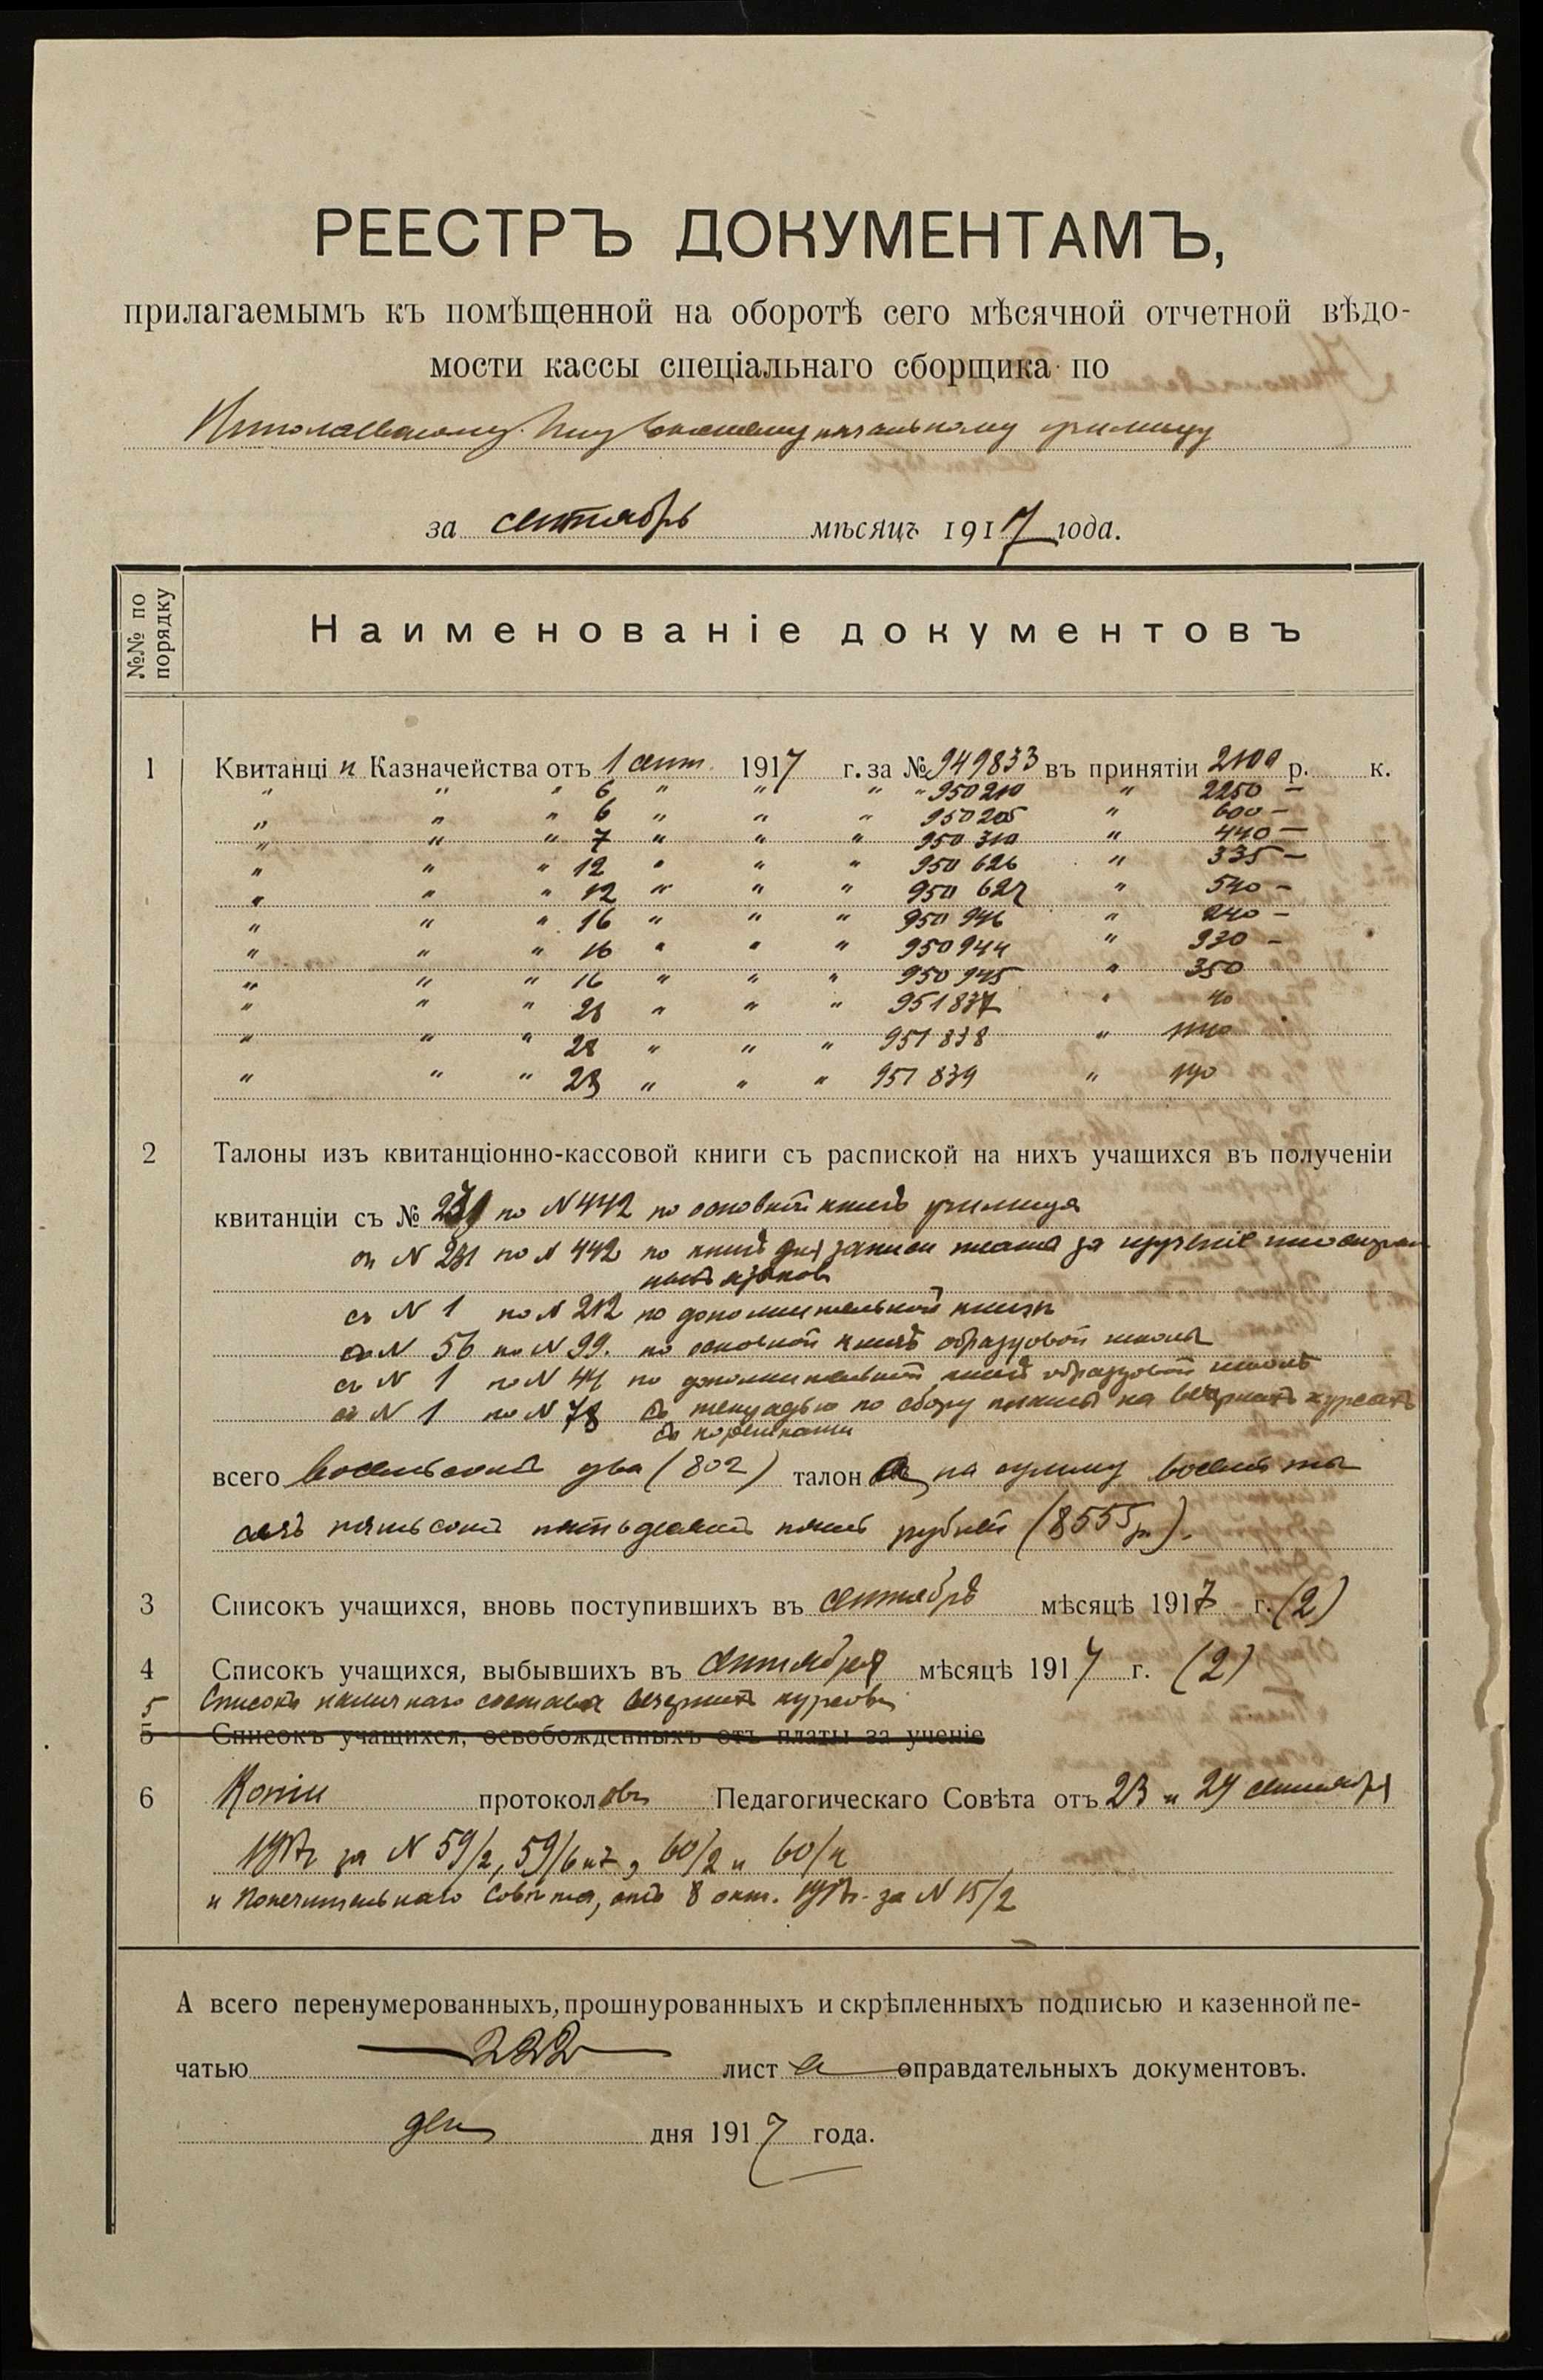 РЕЕСТРЪ ДОКУМЕНТАМЪ,
прилагаемымъ къ помѣщенной на оборотѣ сего мѣсячной отчетной вѣдо-
мости кассы спеціальнаго сборщика по
Николаевскому высшему начальному училищу
за сентябрь мѣсяцъ 1917 года.
№№ по порядку
Наименованіе документовъ
1 Квитанціи Казначейства отъ 1 сент. 1917 г. за № 949833 въ принятіи 2100 р. к.
" " " 6 " " " " 950210 " 2250 —
" " " 6 " " " 950205 " 600 —
" " " 7 " " " 950310 " 440 —
" " " 12 " " " 950626 " 335 —
" " " 12 " " " 950627 " 540 —
" " " 16 " " " 950946 " 240 —
" " " 16 " " " 950944 " 930 —
" " " 16 " " " 950945 " 350
" " " 28 " " " 951837 " 40
" " " 28 " " " 951838 "
" " " 28 " " " 951839 "
2 Талоны изъ квитанціонно-кассовой книги съ распиской на нихъ учащихся въ полученіи
квитанціи съ № по N 442 по основной книгѣ училища
съ N 231 по N 442 по книгѣ для записи платы за изученіе иностран
ныхъ языковъ
съ N 1 по N 212 по дополнительной книгѣ
съ N 56 по N 99. по основной книгѣ образцовой школы
съ N 1 по N 44 по дополнительной книгѣ образцовой школы
съ N 1 по N 78 съ тетрадью по сбору платы на вечернихъ курсахъ
съ корешками
всего восемьсотъ два (802) талона на сумму восемь ты
сячъ пятьсотъ пятьдесятъ пять рублей (8555 р.).
3 Списокъ учащихся, вновь поступившихъ въ сентябрѣ мѣсяцѣ 1917 г. (2)
4 Списокъ учащихся, выбывшихъ въ сентябрѣ мѣсяцѣ 1917 г. (2)
5 Списокъ наличнаго состава вечернихъ курсовъ
5 Списокъ учащихся, освобожденныхъ отъ платы за ученіе
6 Копіи протоколовъ Педагогическаго Совѣта отъ 23 и 29 сентября
1917 г. за N 59/2, 59/6 , 60/2 и 60/4
и Попечительнаго Совѣта, отъ 8 окт. 1917 г. за N 15/2
А всего перенумерованныхъ, прошнурованныхъ и скрѣпленныхъ подписью и казенной пе-
чатью 222 листа оправдательныхъ документовъ.
дня 1917 года.